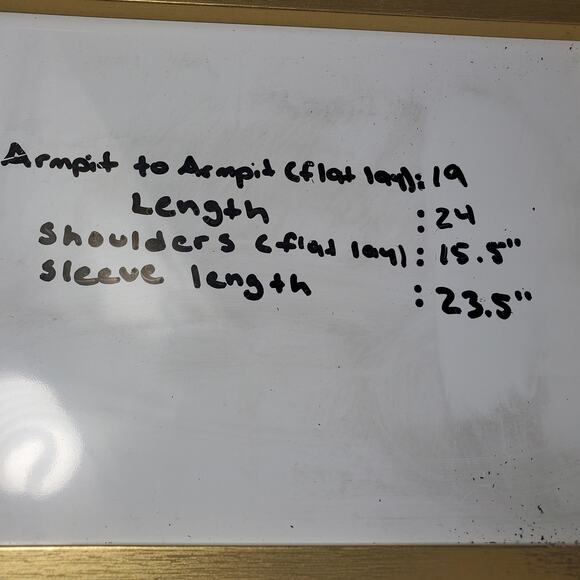 Armpit to Armpit (flat lay): 19
Length : 24
Shoulders (flat lay): 15.5"
Sleeve length : 23.5"